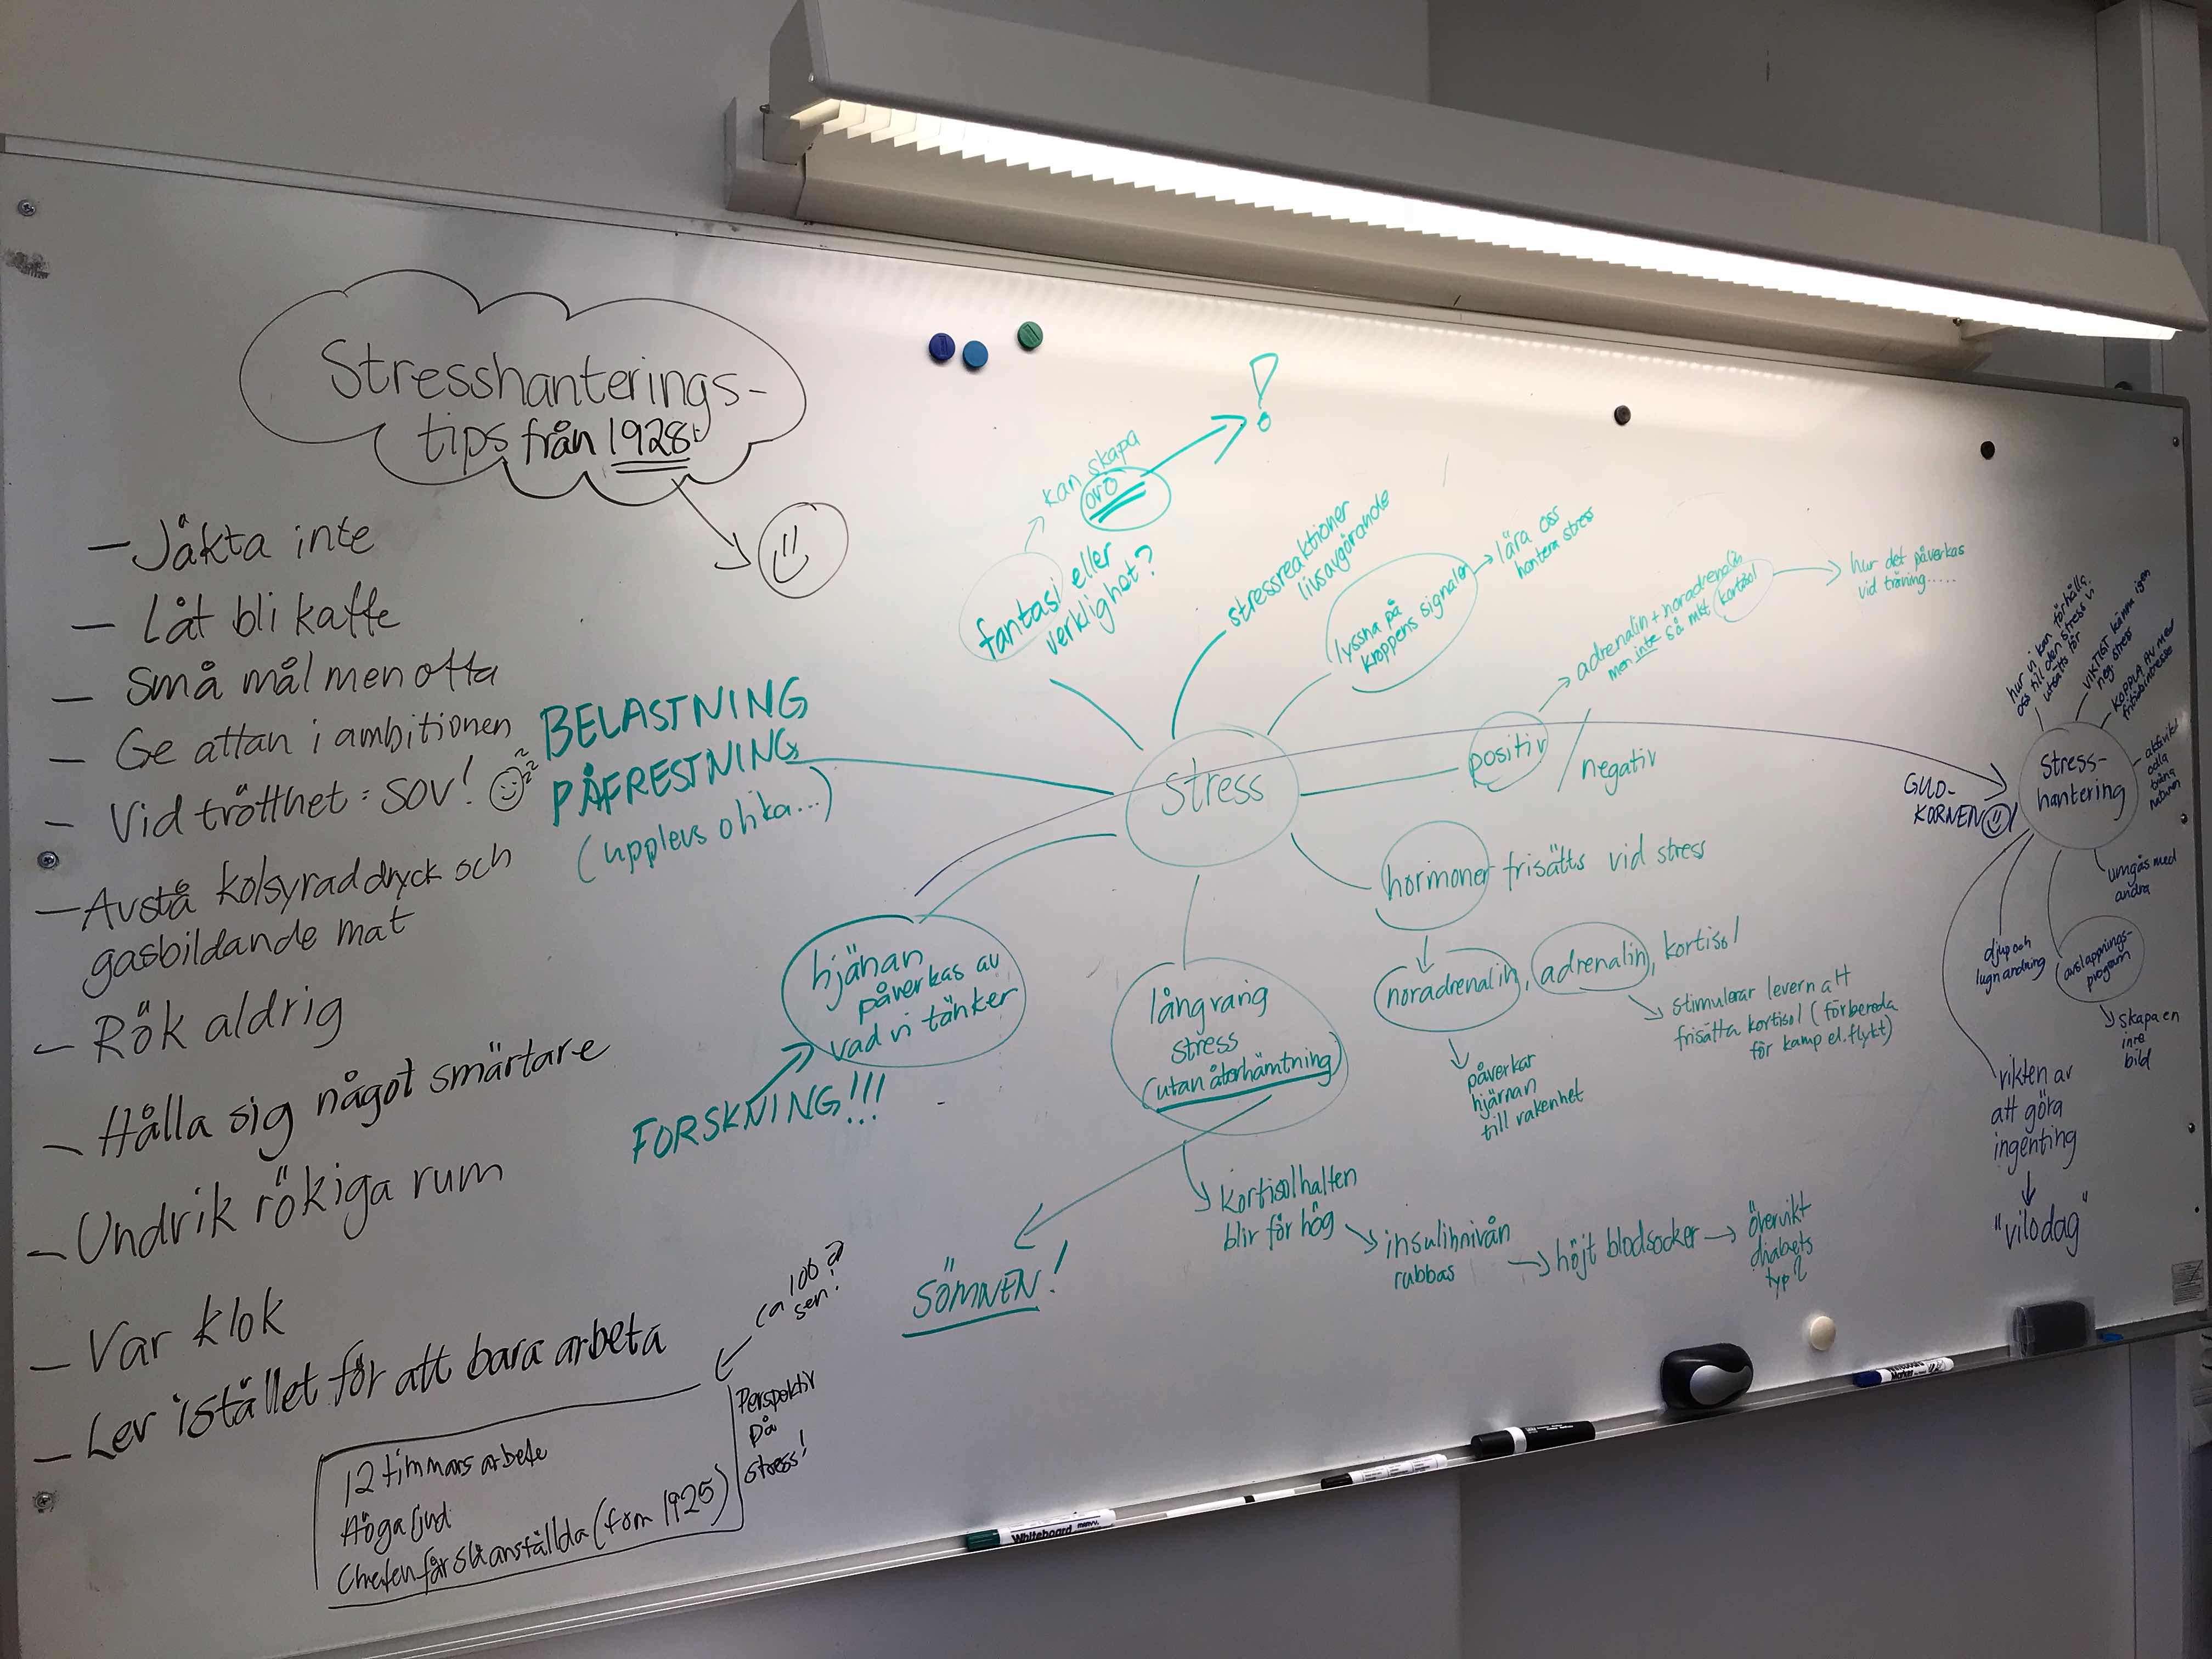 Stresshanterings-
tips från 1928:
- Jäkta inte
- Låt bli kaffe
- Små mål men ofta
- Ge attan i ambitionen
- Vid trötthet: SOV!
- Avstå kolsyrad dryck och
gasbildande mat
- Rök aldrig
- Hålla sig något smärtare
- Undvik rökiga rum
- Var klok
- Lev istället för att bara arbeta
ca 100 år
sen!
12 timmars arbete
Höga ljud
Chefen får slå anställda (fom 1925)
Perspektiv
på
stress!
BELASTNING
PÅFRESTNING
(upplevs olika...)
stress
kan skapa
oro
!
fantasi eller
verklighet?
stressreaktioner
livsavgörande
lyssna på
kroppens signaler
lära oss
hantera stress
positiv
/
negativ
adrenalin + noradrenalin
men inte så mkt kortisol
hur det påverkas
vid träning.....
hormoner frisätts vid stress
noradrenalin, adrenalin, kortisol
stimulerar levern att
frisätta kortisol (förbereda
för kamp el. flykt)
påverkar
hjärnan
till vakenhet
hjänan
påverkas av
vad vi tänker
FORSKNING!!!
långvarig
stress
(utan återhämtning)
SÖMNEN!
kortisolhalten
blir för hög
insulinnivån
rubbas
höjt blodsocker
övervikt
diabets
typ 2
GULD-
KORNEN
Stress-
hantering
hur vi kan förhålla
oss till den stress vi
utsätts för
VIKTIGT känna igen
neg stress
KOPPLA AV MED
fritidsintresse
odla
träna
naturen
umgås med
andra
avslappnings-
program
skapa en
inre
bild
djup och
lugn andning
vikten av
att göra
ingenting
"vilodag"
Whiteboard
Whiteboard
Marker